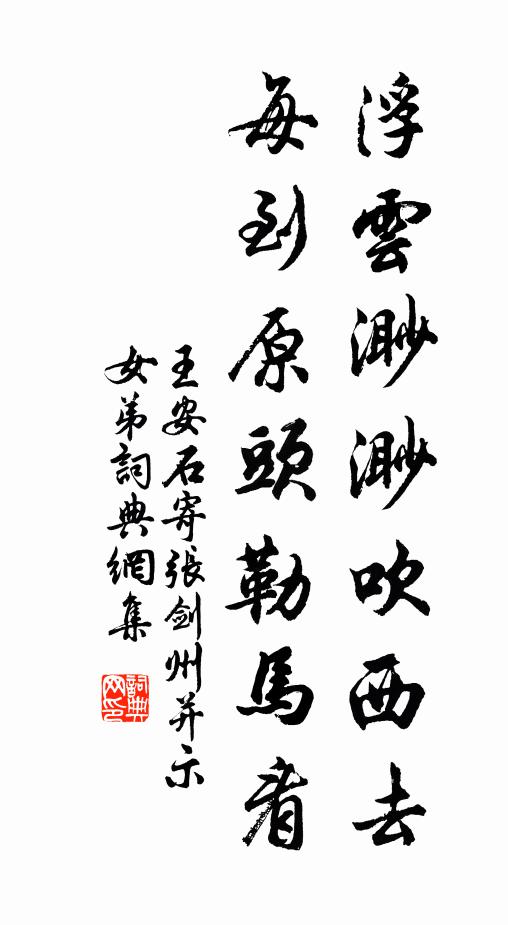 浮雲渺渺吹西去
每到原頭勒馬看
王安石寄張劍州并示
女弟詞典網集
詞典
网印